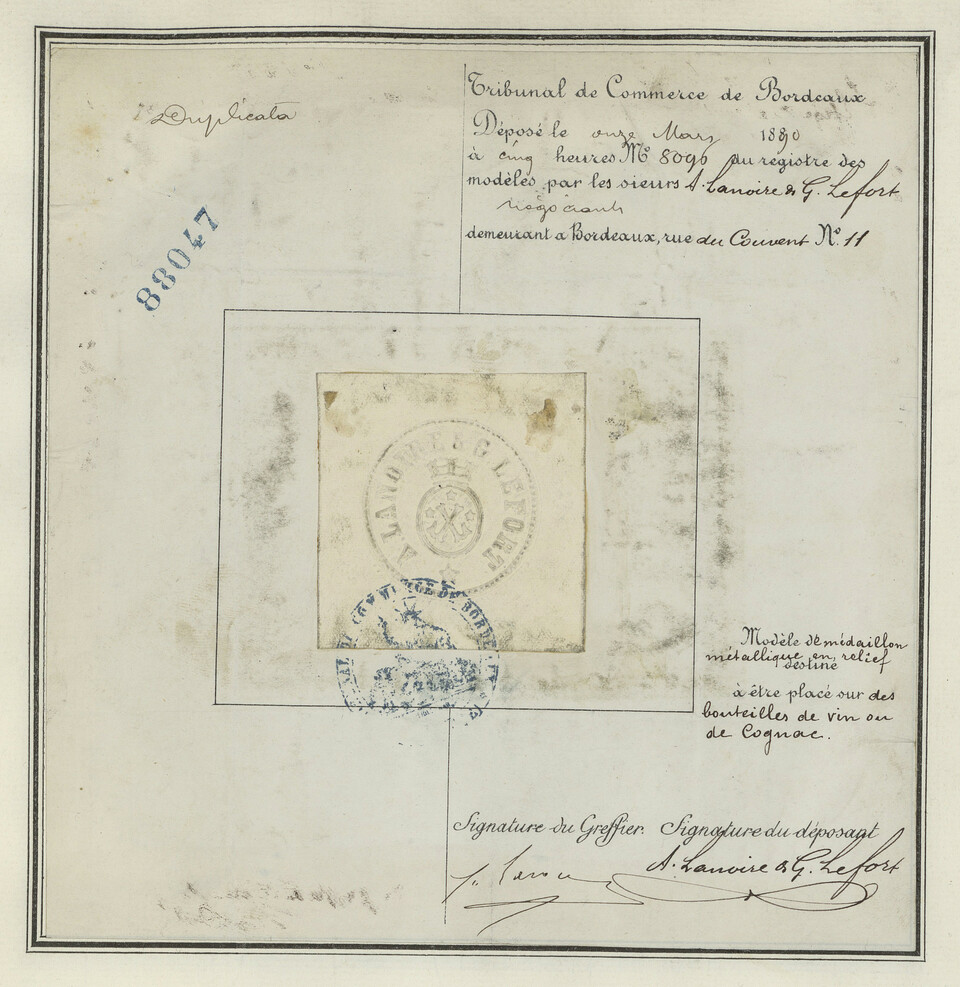 Duplicata
88047
Tribunal de Commerce de Bordeaux
Déposé le onze Mars 1890
à cinq heures Nº 8096 au registre des
modèles par les sieurs A. Lanoire & G. Lefort
négociants
demeurant a Bordeaux, rue du Couvent Nº. 11
A LANOIRE & G LEFORT
COMMERCE DE BORDEAUX
Modèle de médaillon
métallique en relief
destiné
à être placé sur des
bouteilles de vin ou
de Cognac.
Signature du Greffier. Signature du déposant
A. Lanoire & G. Lefort